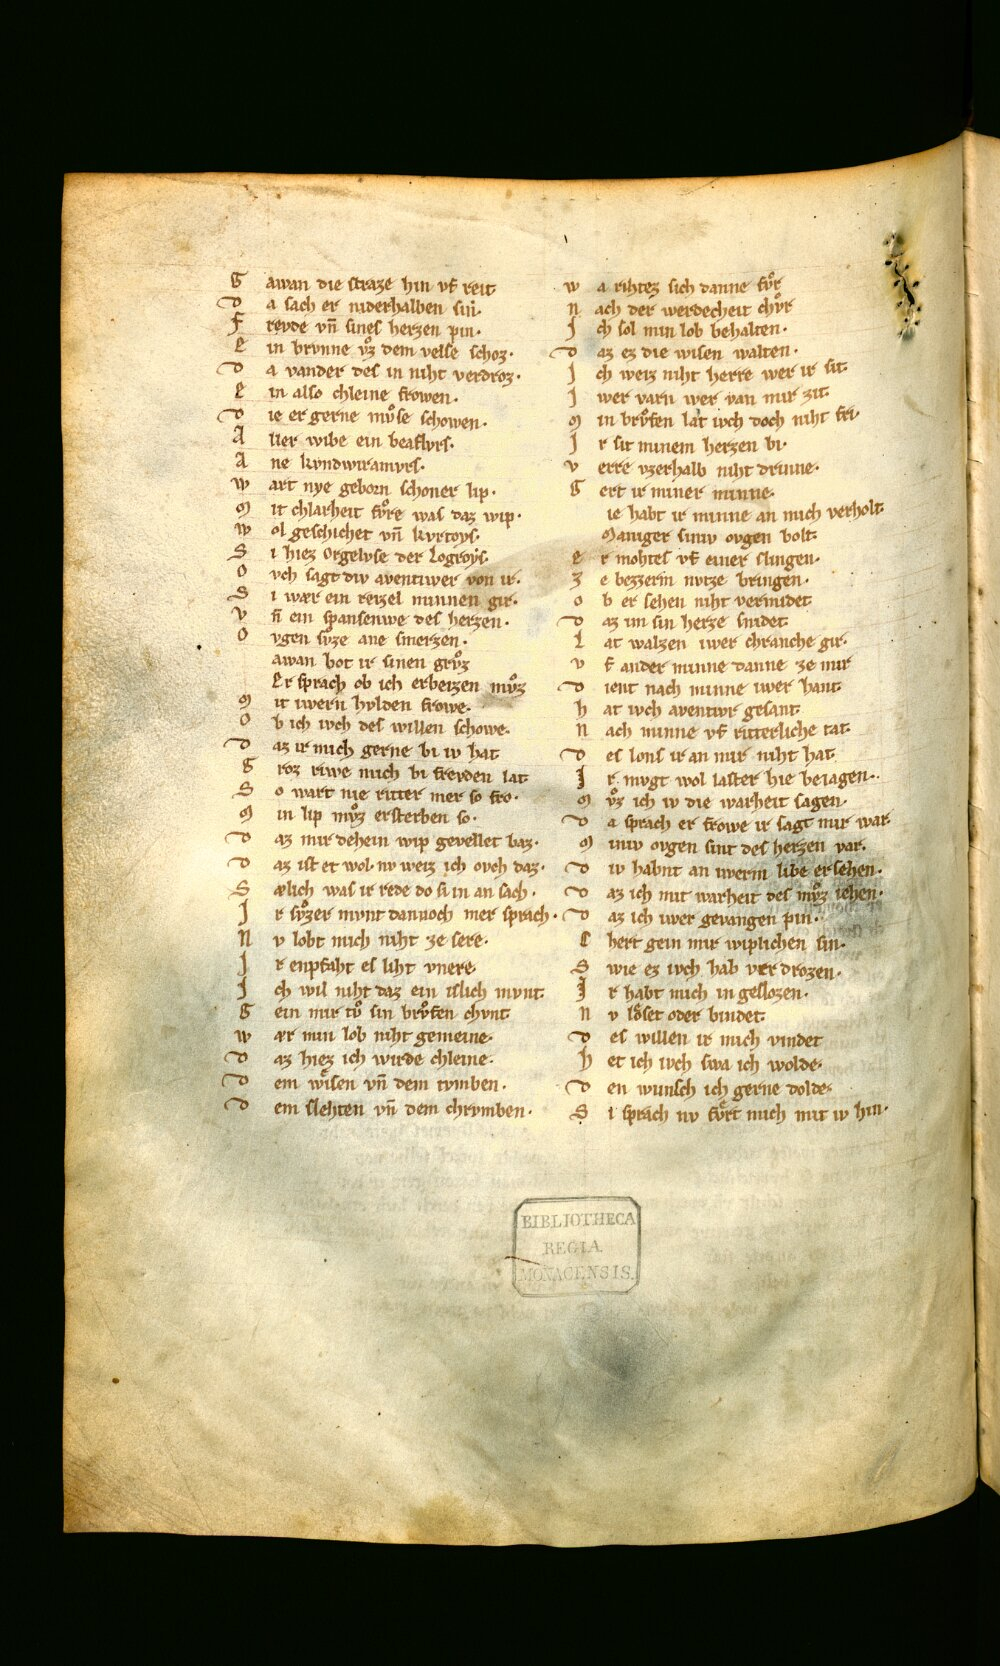 G awan die straze hin vf reit
D a sach er niderhalben sin.
F revde vn̄ sines herzen pin.
E in brvnne vͦz dem velse schoz.
D a vander des in niht verdroz.
E in also chleine frowen.
D ie er gerne mvͦse schowen.
A ller wibe ein beaflvrs.
A ne kvndwiramvrs.
W art nye geborn schoner lip.
M it chlarheit fvͦre was daz wip.
W ol geschichet vn̄ kvrtoys.
S i hiez Orgelvse der Logroys.
O vch sagt div aventiwer von ir.
S i wær ein reizel minnen gir.
V n̄ ein spansenwe des herzen.
O vgen svͦze ane smerzen.
awan bot ir sinen grvͦz
Er sprach ob ich erbeizen mvͦz
M it iwern hvlden frowe.
O b ich iwch des willen schowe.
D az ir mich gerne bi iv hat
G roz riwe mich bi frevden lat
S o wart nie ritter mer so fro.
M in lip mvͦz ersterben so.
D az mir dehein wip gevellet baz.
D az ist et wol. nv weiz ich ovch daz.
S ælich was ir rede do si in an sach.
I r svͦzer mvnt dannoch mer sprach.
N v lobt mich niht ze sere.
I r enpfaht es liht vnere.
I ch wil niht daz ein islich mvnt
G ein mir tvͦ sin brvͦfen chvnt
W ær min lob niht gemeine.
D az hiez ich wirde chleine.
D em wisen vn̄ dem tvmben.
D em slehten vn̄ dem chrvmben.
W a rihtez sich danne fvͦr
N ach der werdecheit chvͦr
I ch sol min lob behalten.
D az ez die wisen walten.
I ch weiz niht herre wer ir sit
I wer varn wer van mir zit.
M in brvͦfen lat iwch doch niht fri
I r sit minem herzen bi.
V erre vzerhalb niht drinne.
G ert ir miner minne.
ie habt ir minne an mich verholt
Maniger siniv ovgen bolt.
E r mohtes vf einer slingen.
Z e bezzerm nvtze bringen.
O b er sehen niht vermidet
D az im sin herze snidet
L at walzen iwer chranche gir.
V f ander minne danne ze mir
D ient nach minne iwer hant
H at iwch aventivr gesant
N ach minne vf ritterliche tat.
D es lons ir an mir niht hat.
I r mvgt wol laster hie beiagen.
M vͦz ich iv die warheit sagen.
D a sprach er frowe ir sagt mir war.
M iniv ovgen sint des herzen var.
D iv habnt an iwerm libe ersehen.
D az ich mit warheit des mvͦz iehen.
D az ich iwer gevangen pin.
C hert gein mir wiplichen sin.
S wie ez iwch hab verdrozen.
I r habt mich in geslozen.
N v lôset oder bindet
D es willen ir mich vindet
H et ich iwch swa ich wolde.
D en wunsch ich gerne dolde.
S i sprach nv fvͦrt mich mit iv hin.
BIBLIOTHECA
REGIA
MONACENSIS.